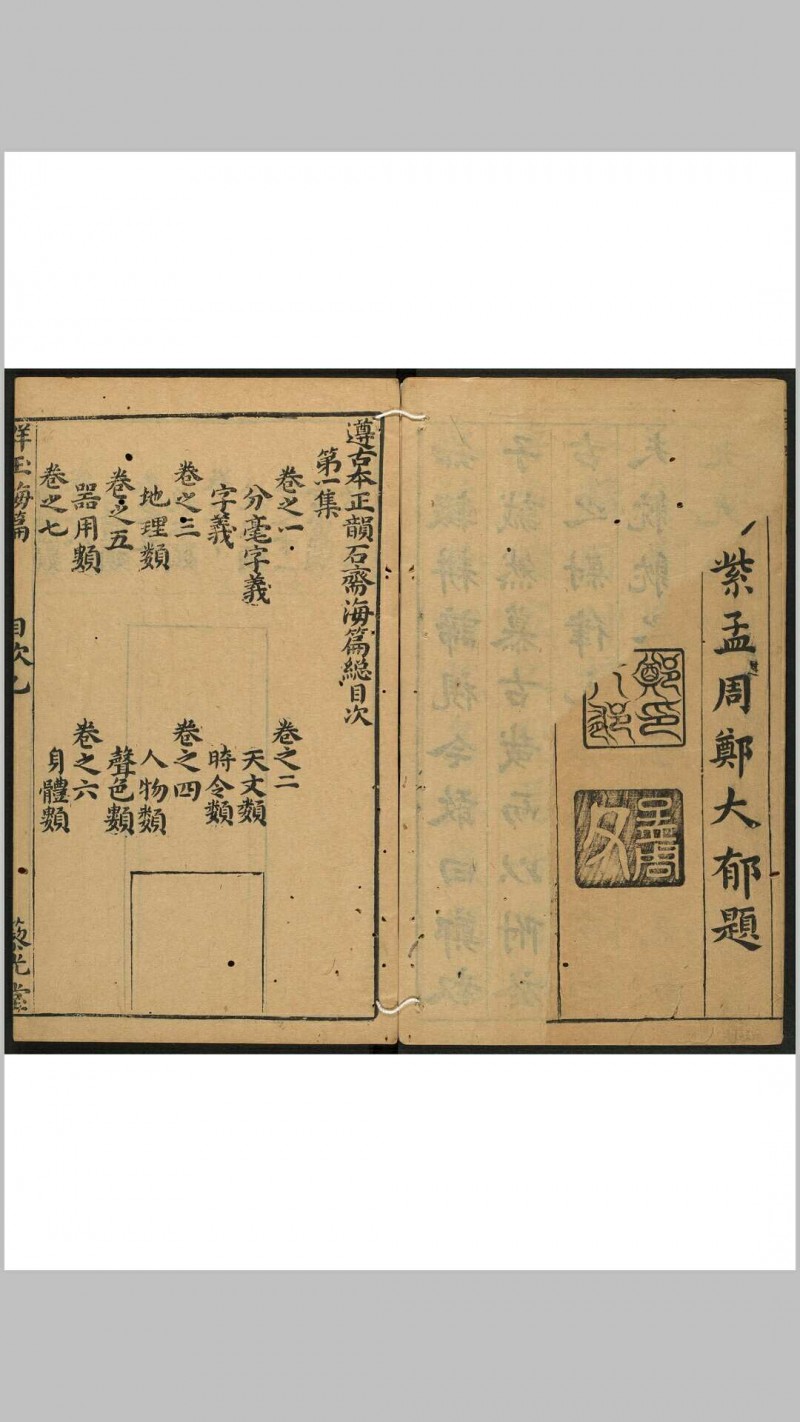 紫孟周鄭大郁題
遵古本正韻石齋海篇總目次
第一集
卷之一
分毫字義
字義
卷之二
天文類
時令類
卷之三
地理類
卷之四
人物類
卷之五
器用類
聲色類
卷之六
身體類
卷之七
玉海篇
目次